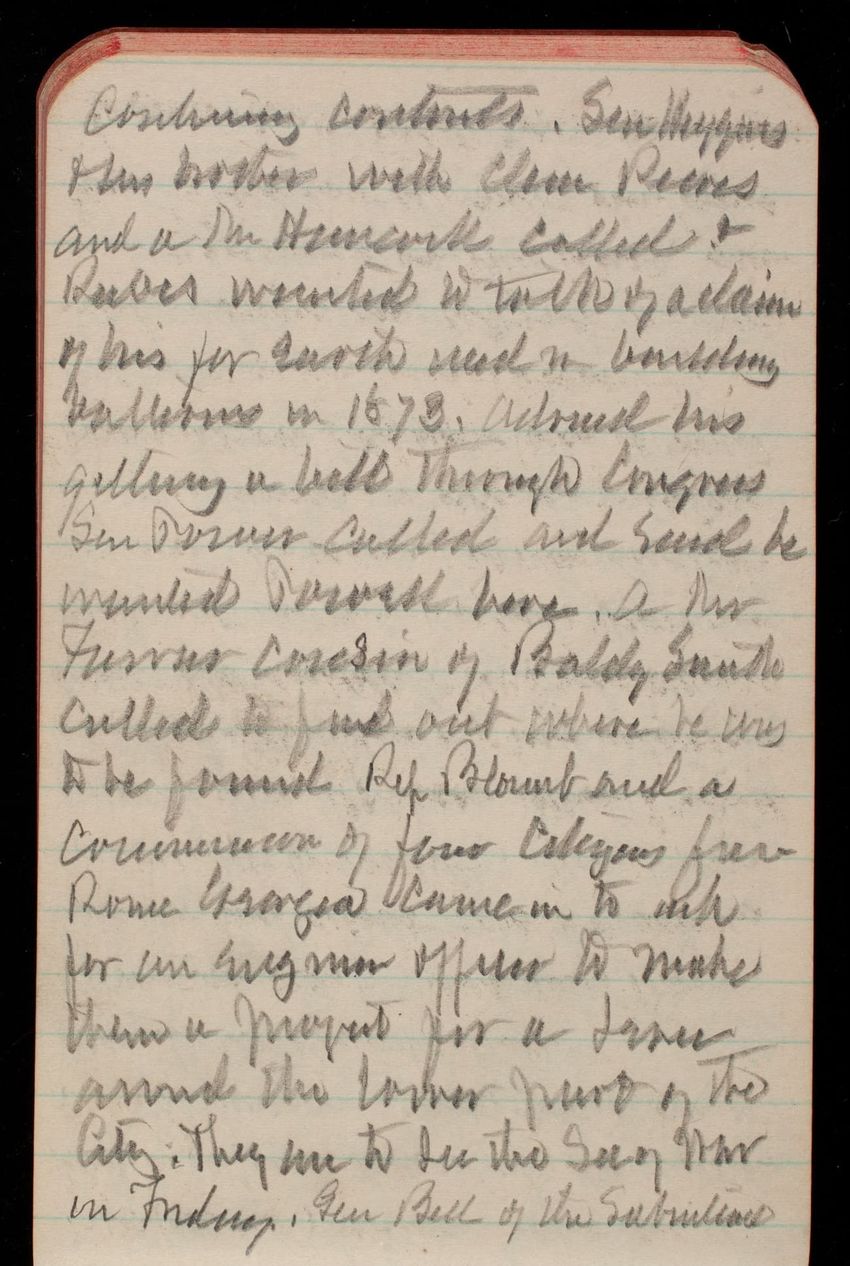 Continuing contracts. Sen Higgins
& his brother with Clem Reeves
and a Mr Hancock called &
Reeves wanted to talk of a claim
of his for earth used in building
batteries in 1873. Advised his
getting a bill through Congress
Gen Tower called and said he
wanted here. A Mr
Turner cousin of Baldy Smith
called to find out where he was
to be found Rep Blount and a
Commission of four Citizens from
Rome Georgia came in to ask
for an Engineer officer to make
them a project for a levee
around the lower part of the
City. They are to see the Sec of War
on Friday. Gen Bell of the Subsistence